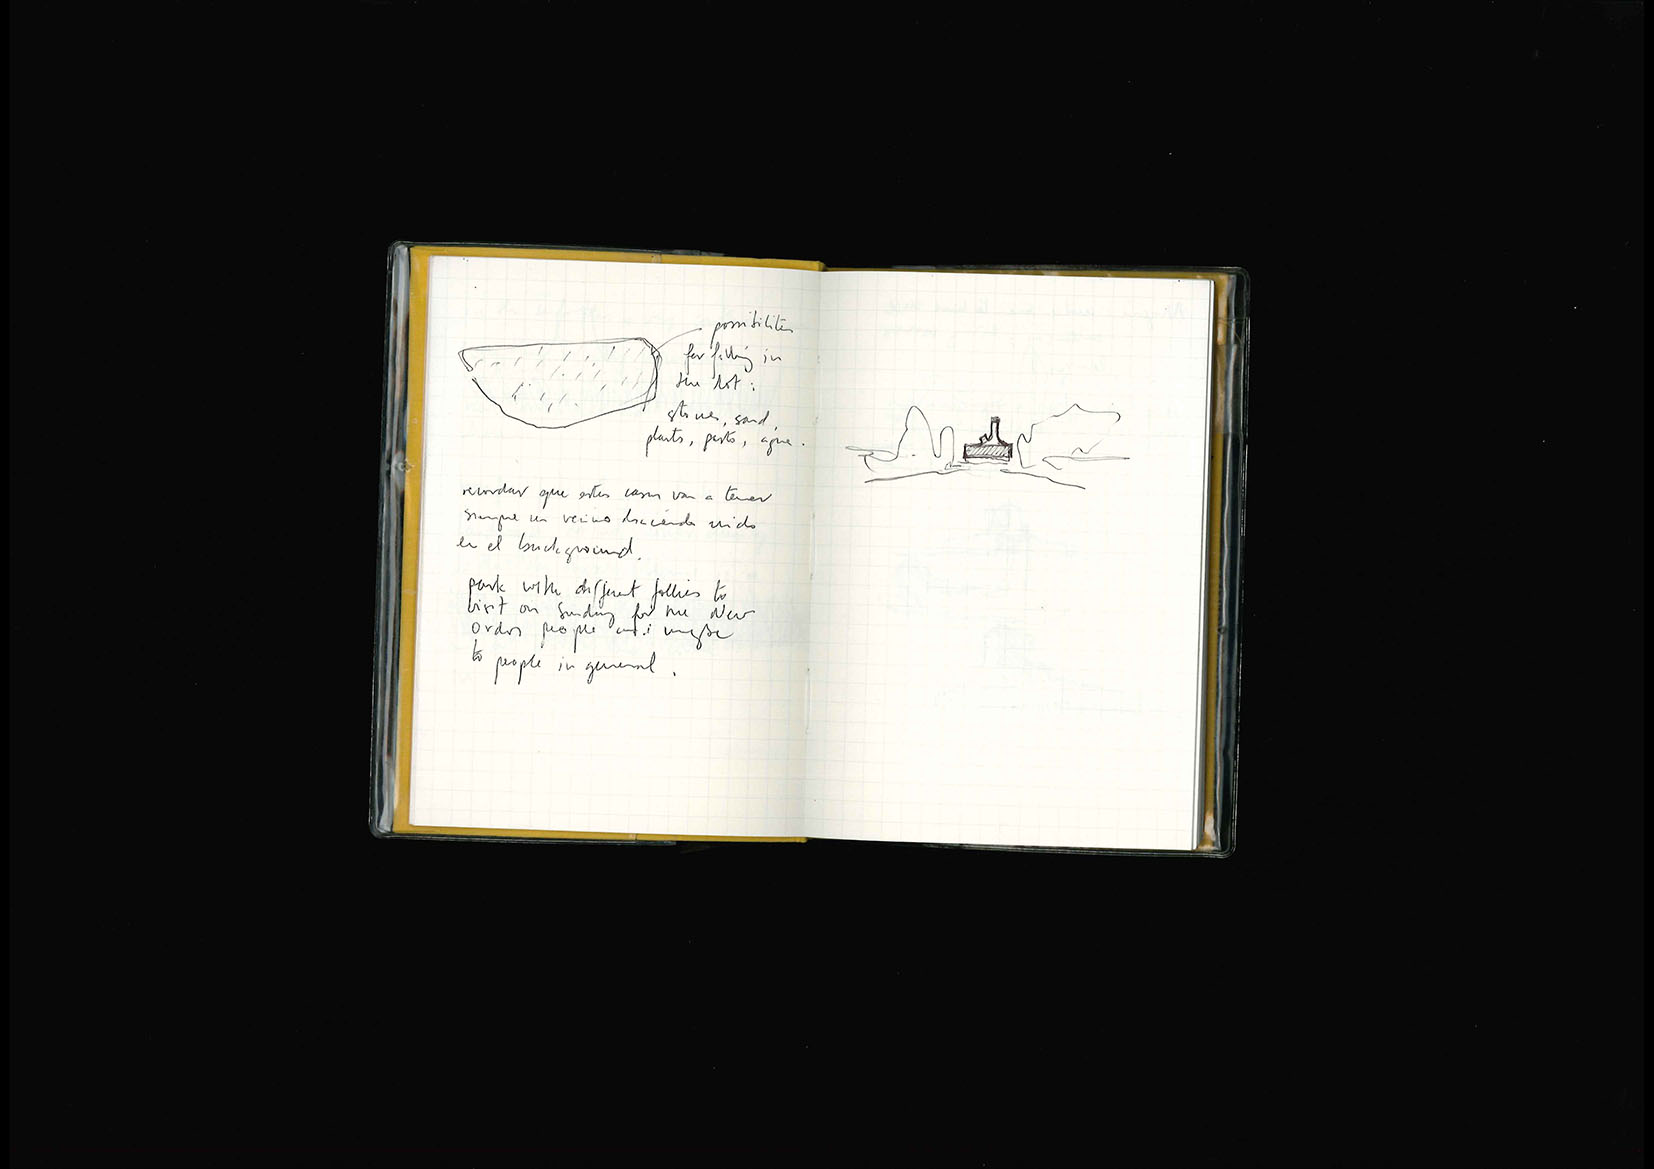 possibilities
for filling in
the lot:
stones, sand,
plants, pasto, agua.
recordar que estas casas van a tener
siempre un vecino haciendo ruido
en el background.
park with different follies to
visit on Sunday for the New
Orders people and maybe
to people in general.